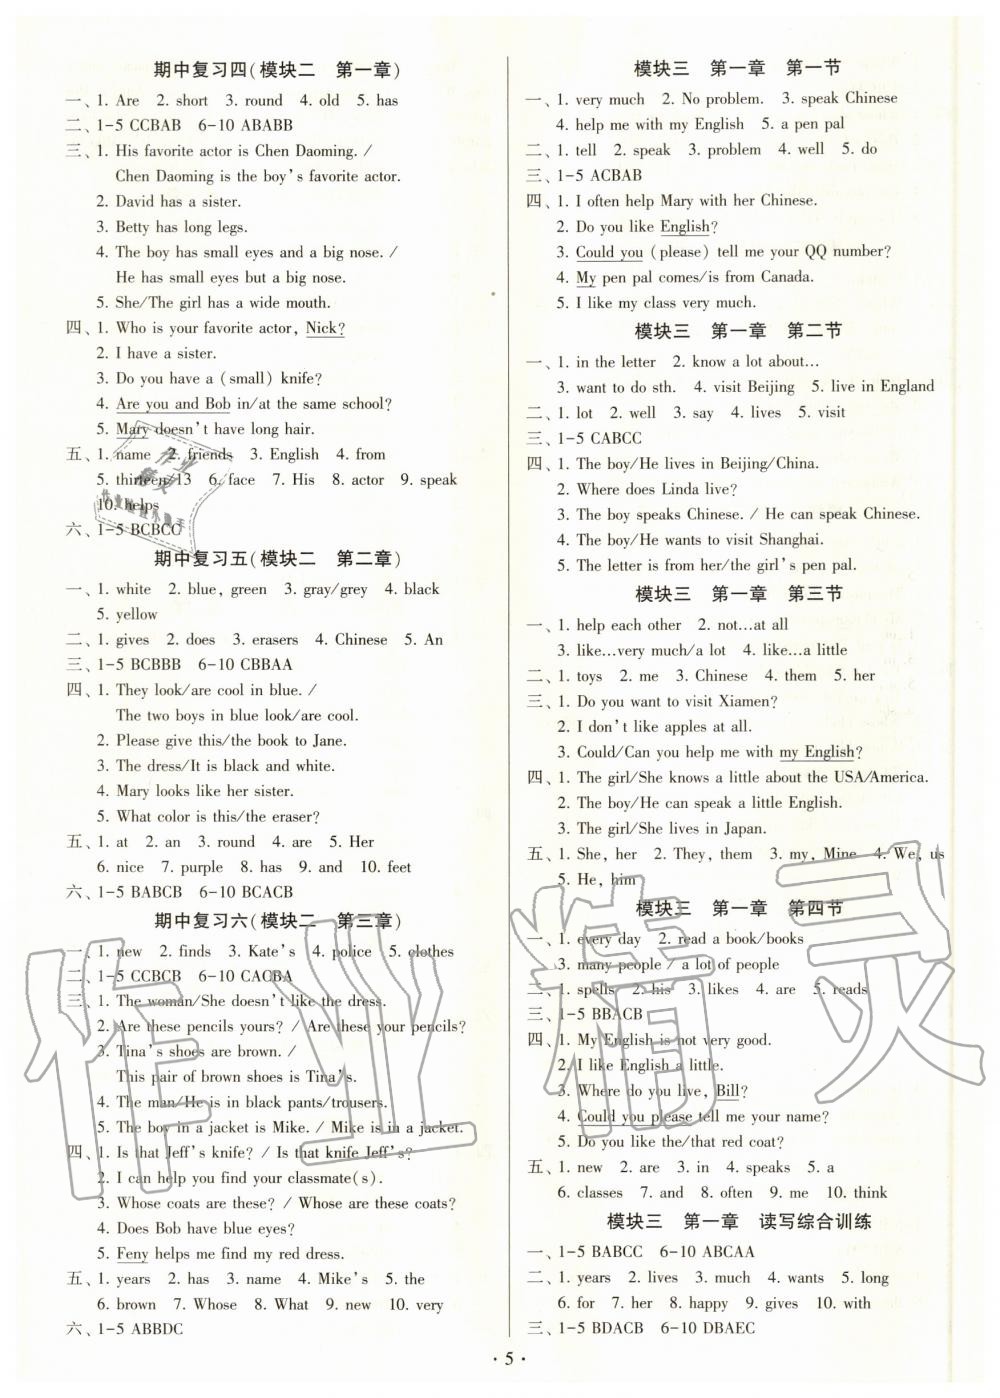 期中复习四(模块二 第一章)
一、1. Are 2. short 3. round 4. old 5. has
二、1-5 CCBAB 6-10 ABABB
三、1. His favorite actor is Chen Daoming. /
Chen Daoming is the boy's favorite actor.
2. David has a sister.
3. Betty has long legs.
4. The boy has small eyes and a big nose. /
He has small eyes but a big nose.
5. She/The girl has a wide mouth.
四、1. Who is your favorite actor, Nick?
2. I have a sister.
3. Do you have a (small) knife?
4. Are you and Bob in/at the same school?
5. Mary doesn't have long hair.
五、1. name 2. friends 3. English 4. from
5. thirteen/13 6. face 7. His 8. actor 9. speak
10. helps
六、1-5 BCBCC
期中复习五(模块二 第二章)
一、1. white 2. blue, green 3. gray/grey 4. black
5. yellow
二、1. gives 2. does 3. erasers 4. Chinese 5. An
三、1-5 BCBBB 6-10 CBBAA
四、1. They look/are cool in blue. /
The two boys in blue look/are cool.
2. Please give this/the book to Jane.
3. The dress/It is black and white.
4. Mary looks like her sister.
5. What color is this/the eraser?
五、1. at 2. an 3. round 4. are 5. Her
6. nice 7. purple 8. has 9. and 10. feet
六、1-5 BABCB 6-10 BCACB
期中复习六(模块二 第三章)
一、1. new 2. finds 3. Kate's 4. police 5. clothes
二、1-5 CCBCB 6-10 CACBA
三、1. The woman/She doesn't like the dress.
2. Are these pencils yours? / Are these your pencils?
3. Tina's shoes are brown. /
This pair of brown shoes is Tina's.
4. The man/He is in black pants/trousers.
5. The boy in a jacket is Mike. / Mike is in a jacket.
四、1. Is that Jeff's knife? / Is that knife Jeff's?
2. I can help you find your classmate(s).
3. Whose coats are these? / Whose are these coats?
4. Does Bob have blue eyes?
5. Feny helps me find my red dress.
五、1. years 2. has 3. name 4. Mike's 5. the
6. brown 7. Whose 8. What 9. new 10. very
六、1-5 ABBDC
模块三 第一章 第一节
一、1. very much 2. No problem. 3. speak Chinese
4. help me with my English 5. a pen pal
二、1. tell 2. speak 3. problem 4. well 5. do
三、1-5 ACBAB
四、1. I often help Mary with her Chinese.
2. Do you like English?
3. Could you (please) tell me your QQ number?
4. My pen pal comes/is from Canada.
5. I like my class very much.
模块三 第一章 第二节
一、1. in the letter 2. know a lot about…
3. want to do sth. 4. visit Beijing 5. live in England
二、1. lot 2. well 3. say 4. lives 5. visit
三、1-5 CABCC
四、1. The boy/He lives in Beijing/China.
2. Where does Linda live?
3. The boy speaks Chinese. / He can speak Chinese.
4. The boy/He wants to visit Shanghai.
5. The letter is from her/the girl's pen pal.
模块三 第一章 第三节
一、1. help each other 2. not…at all
3. like…very much/a lot 4. like…a little
二、1. toys 2. me 3. Chinese 4. them 5. her
三、1. Do you want to visit Xiamen?
2. I don't like apples at all.
3. Could/Can you help me with my English?
四、1. The girl/She knows a little about the USA/America.
2. The boy/He can speak a little English.
3. The girl/She lives in Japan.
五、1. She, her 2. They, them 3. my, Mine 4. We, us
5. He, him
模块三 第一章 第四节
一、1. every day 2. read a book/books
3. many people / a lot of people
二、1. spells 2. his 3. likes 4. are 5. reads
三、1-5 BBACB
四、1. My English is not very good.
2. I like English a little.
3. Where do you live, Bill?
4. Could you please tell me your name?
5. Do you like the/that red coat?
五、1. new 2. are 3. in 4. speaks 5. a
6. classes 7. and 8. often 9. me 10. think
模块三 第一章 读写综合训练
一、1-5 BABCC 6-10 ABCAA
二、1. years 2. lives 3. much 4. wants 5. long
6. for 7. her 8. happy 9. gives 10. with
三、1-5 BDACB 6-10 DBAEC
· 5 ·
作业精灵